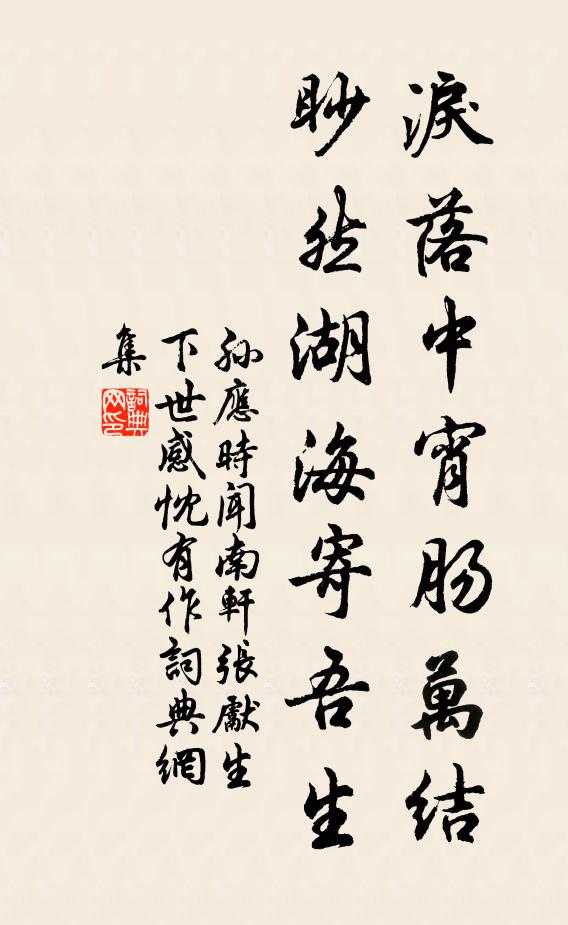 淚落中宵腸萬結
眇然湖海寄吾生
孫應時聞南軒張獻生
下世感忱有作詞典網
集
詞典
网印